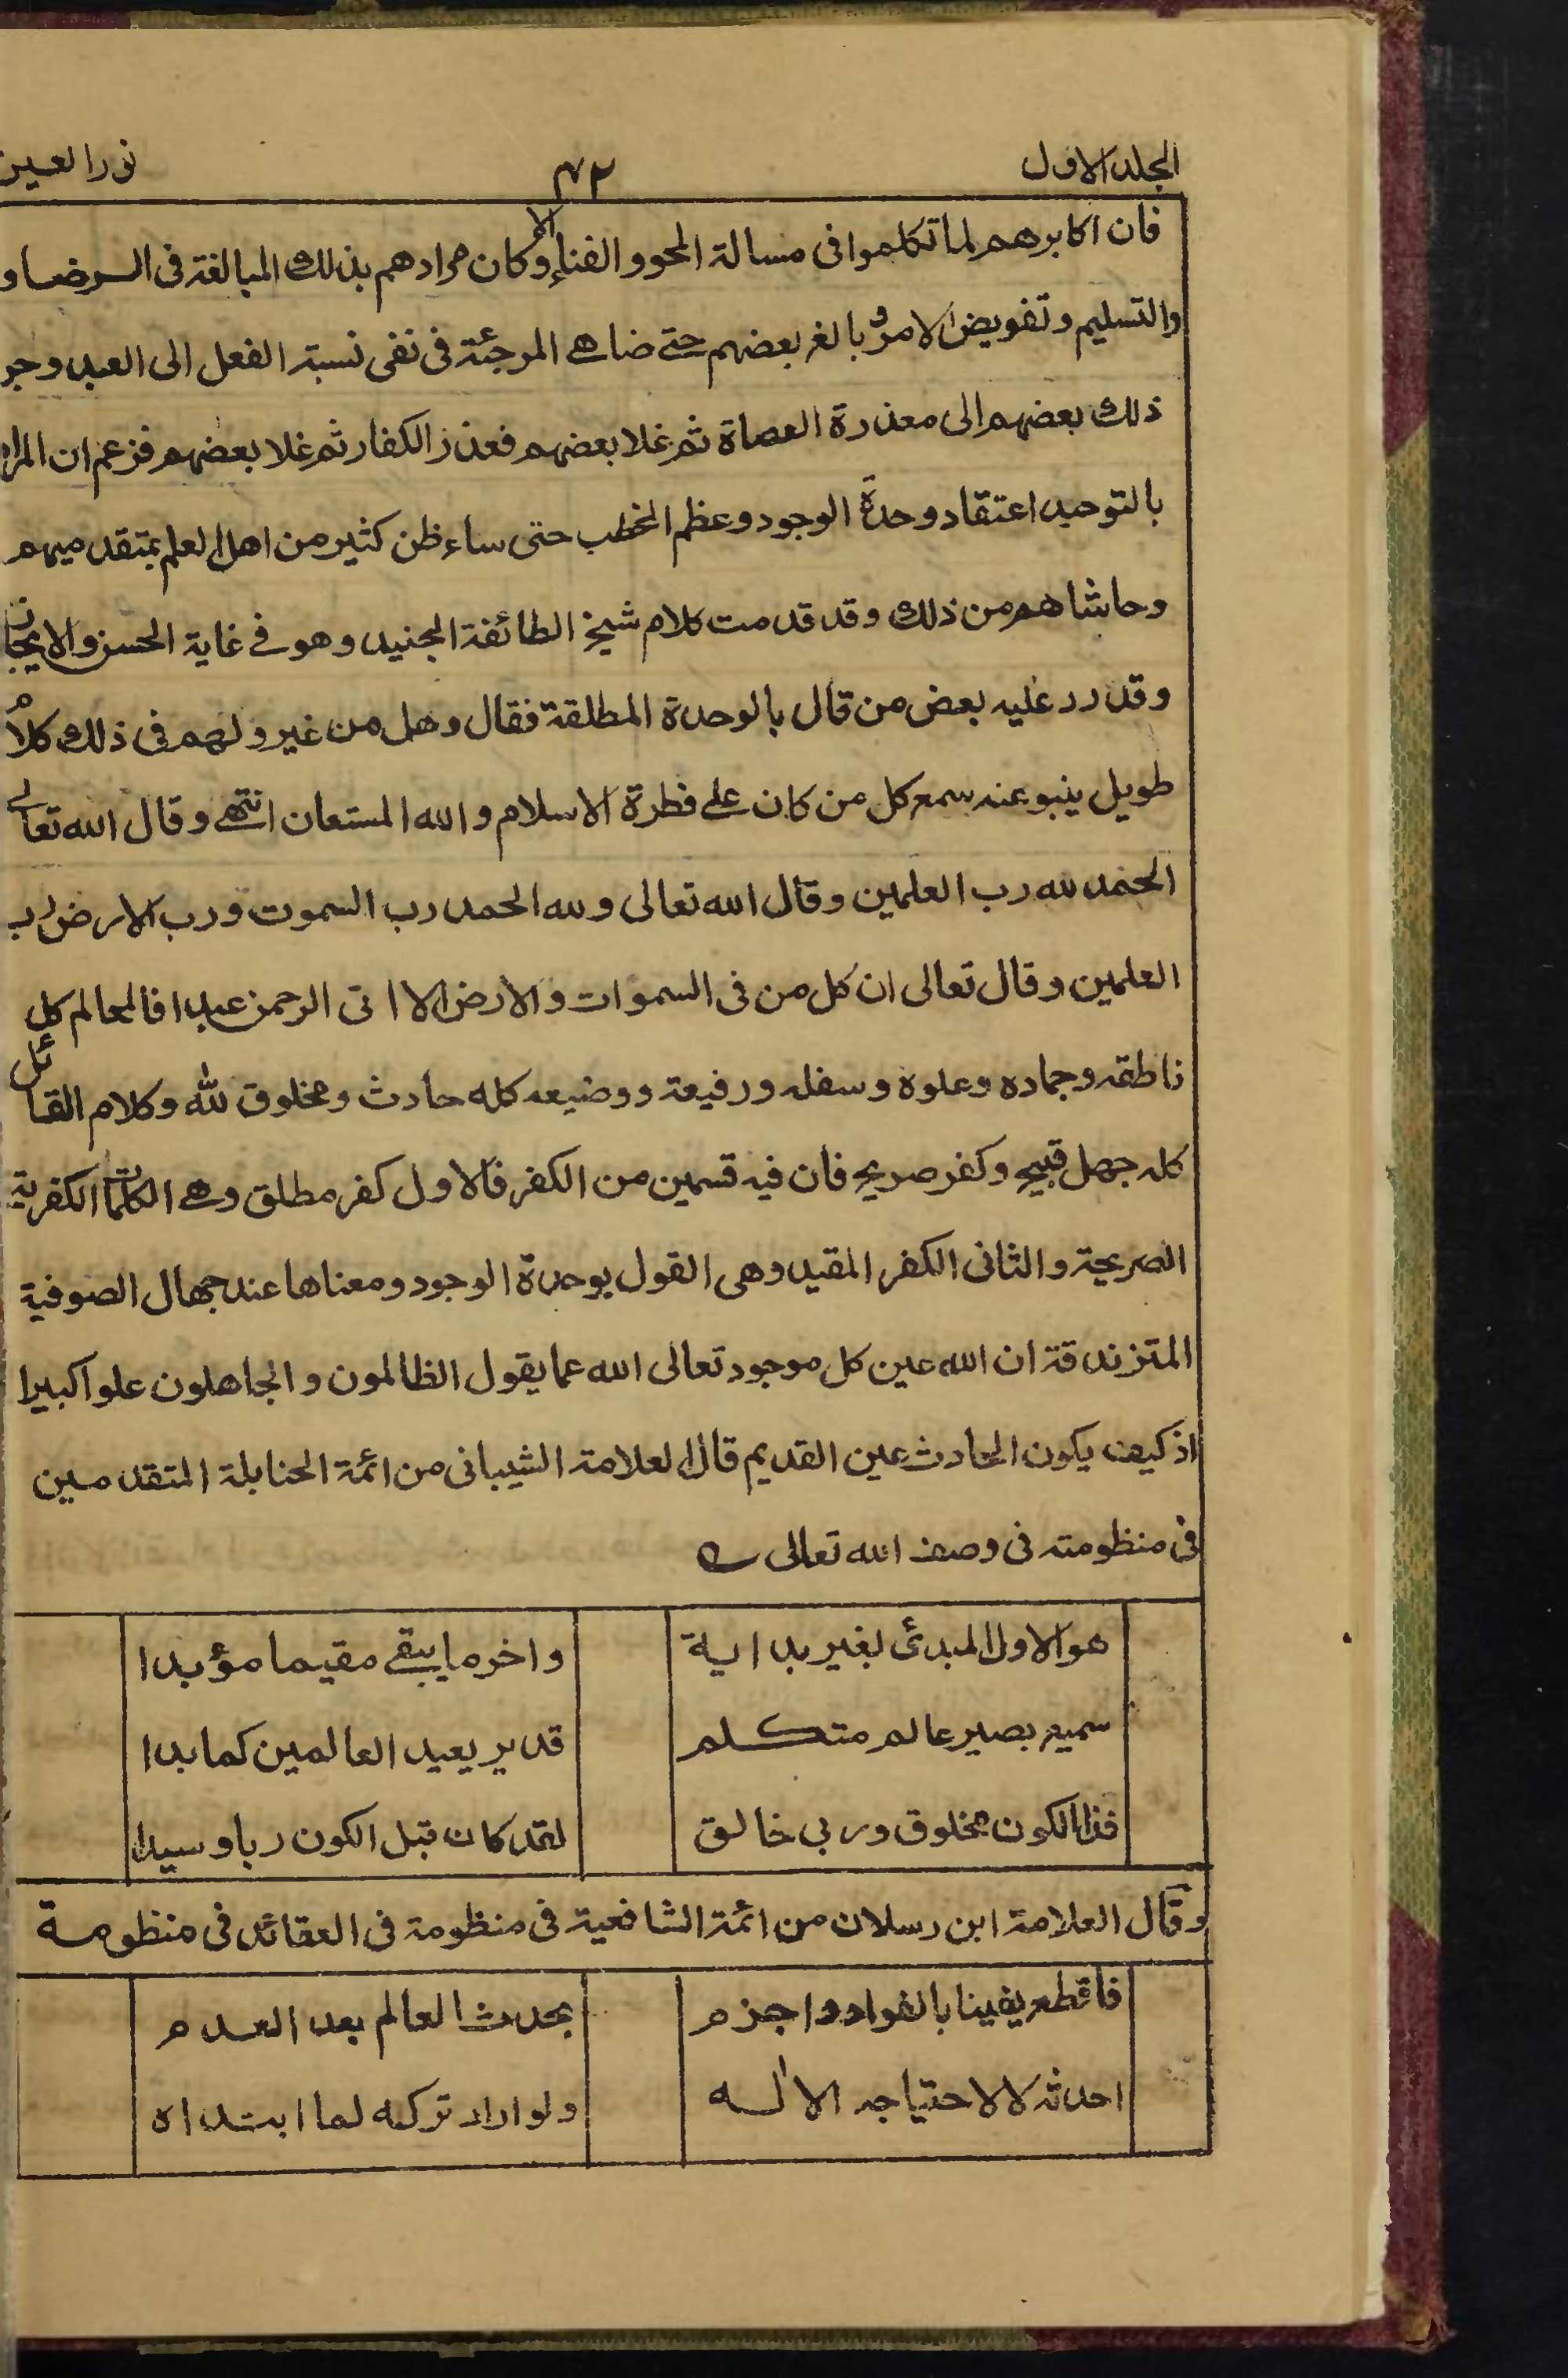 المجلد الاول ٧٢ نور العين
فان اكابرهم لما تكلموا فى مسالة المحو والفناء الا وكان مرادهم بذلك المبالغة فى الرضا و
والتسليم وتفويض الامر و بالغ بعضهم حتى ضاهى المرجئة فى نفى نسبة الفعل الى العبد وجر
ذلك بعضهم الى معذرة العصاة ثم غلا بعضهم فعذر الكفار ثم غلا بعضهم فزعم ان المراد
بالتوحيد اعتقاد وحدة الوجود وعظم الخطب حتى ساء ظن كثير من اهل العلم بمتقدميهم
وحاشاهم من ذلك وقد قدمت كلام شيخ الطائفة الجنيد وهو فى غاية الحسن والايجاز
وقد رد عليه بعض من قال بالوحدة المطلقة فقال وهل من غير ولهم فى ذلك كلام
طويل ينبو عنه سمع كل من كان على فطرة الاسلام والله المستعان انتهى وقال الله تعالى
الحمد لله رب العلمين وقال الله تعالى ولله الحمد رب السموت ورب الارض رب
العلمين وقال تعالى ان كل من فى السموات والارض الا اتى الرحمن عبدا فالعالم كل
ناطقه وجماده وعلوه وسفله ورفيعة ووضيعه كله حادث ومخلوق لله وكلام القائل
كله جهل قبيح وكفر صريح فان فيه قسمين من الكفر فالاول كفر مطلق وهى الكلمات الكفرية
الصريحة والثانى الكفر المقيد وهى القول بوحدة الوجود ومعناها عند جهال الصوفية
المتزندقة ان الله عين كل موجود تعالى الله عما يقول الظالمون والجاهلون علوا كبيرا
اذ كيف يكون الحادث عين القديم قال العلامة الشيبانى من ائمة الحنابلة المتقدمين
فى منظومته فى وصف الله تعالى
هو الاول المبدئ بغير بداية واخر ما يبقى مقيما مؤبدا
سميع بصير عالم متكلم قدير يعيد العالمين كما بدا
فذا الكون مخلوق وربى خالق لقد كان قبل الكون ربا وسيدا
وقال العلامة ابن رسلان من ائمة الشافعية فى منظومة فى العقائد فى منظومة
فاقطع يقينا بالفواد واجزم بحدث العالم بعد العدم
احدثه لا لاحتياجه الاله ولو اراد تركه لما ابتداه